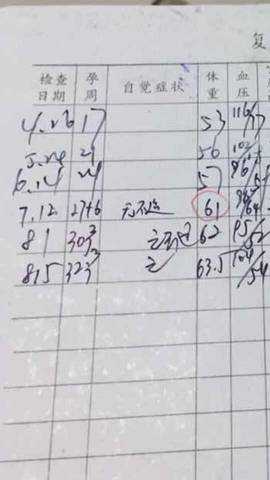 复
检查日期 孕周 自觉症状 体重 血压
4.26 17 53 116/77
5.24 21 56 102
6.14 24 57 96
7.12 27+6 无不适 61 96/64
8.1 30+3 62 95/52
8.15 32+3 63.5 104/54